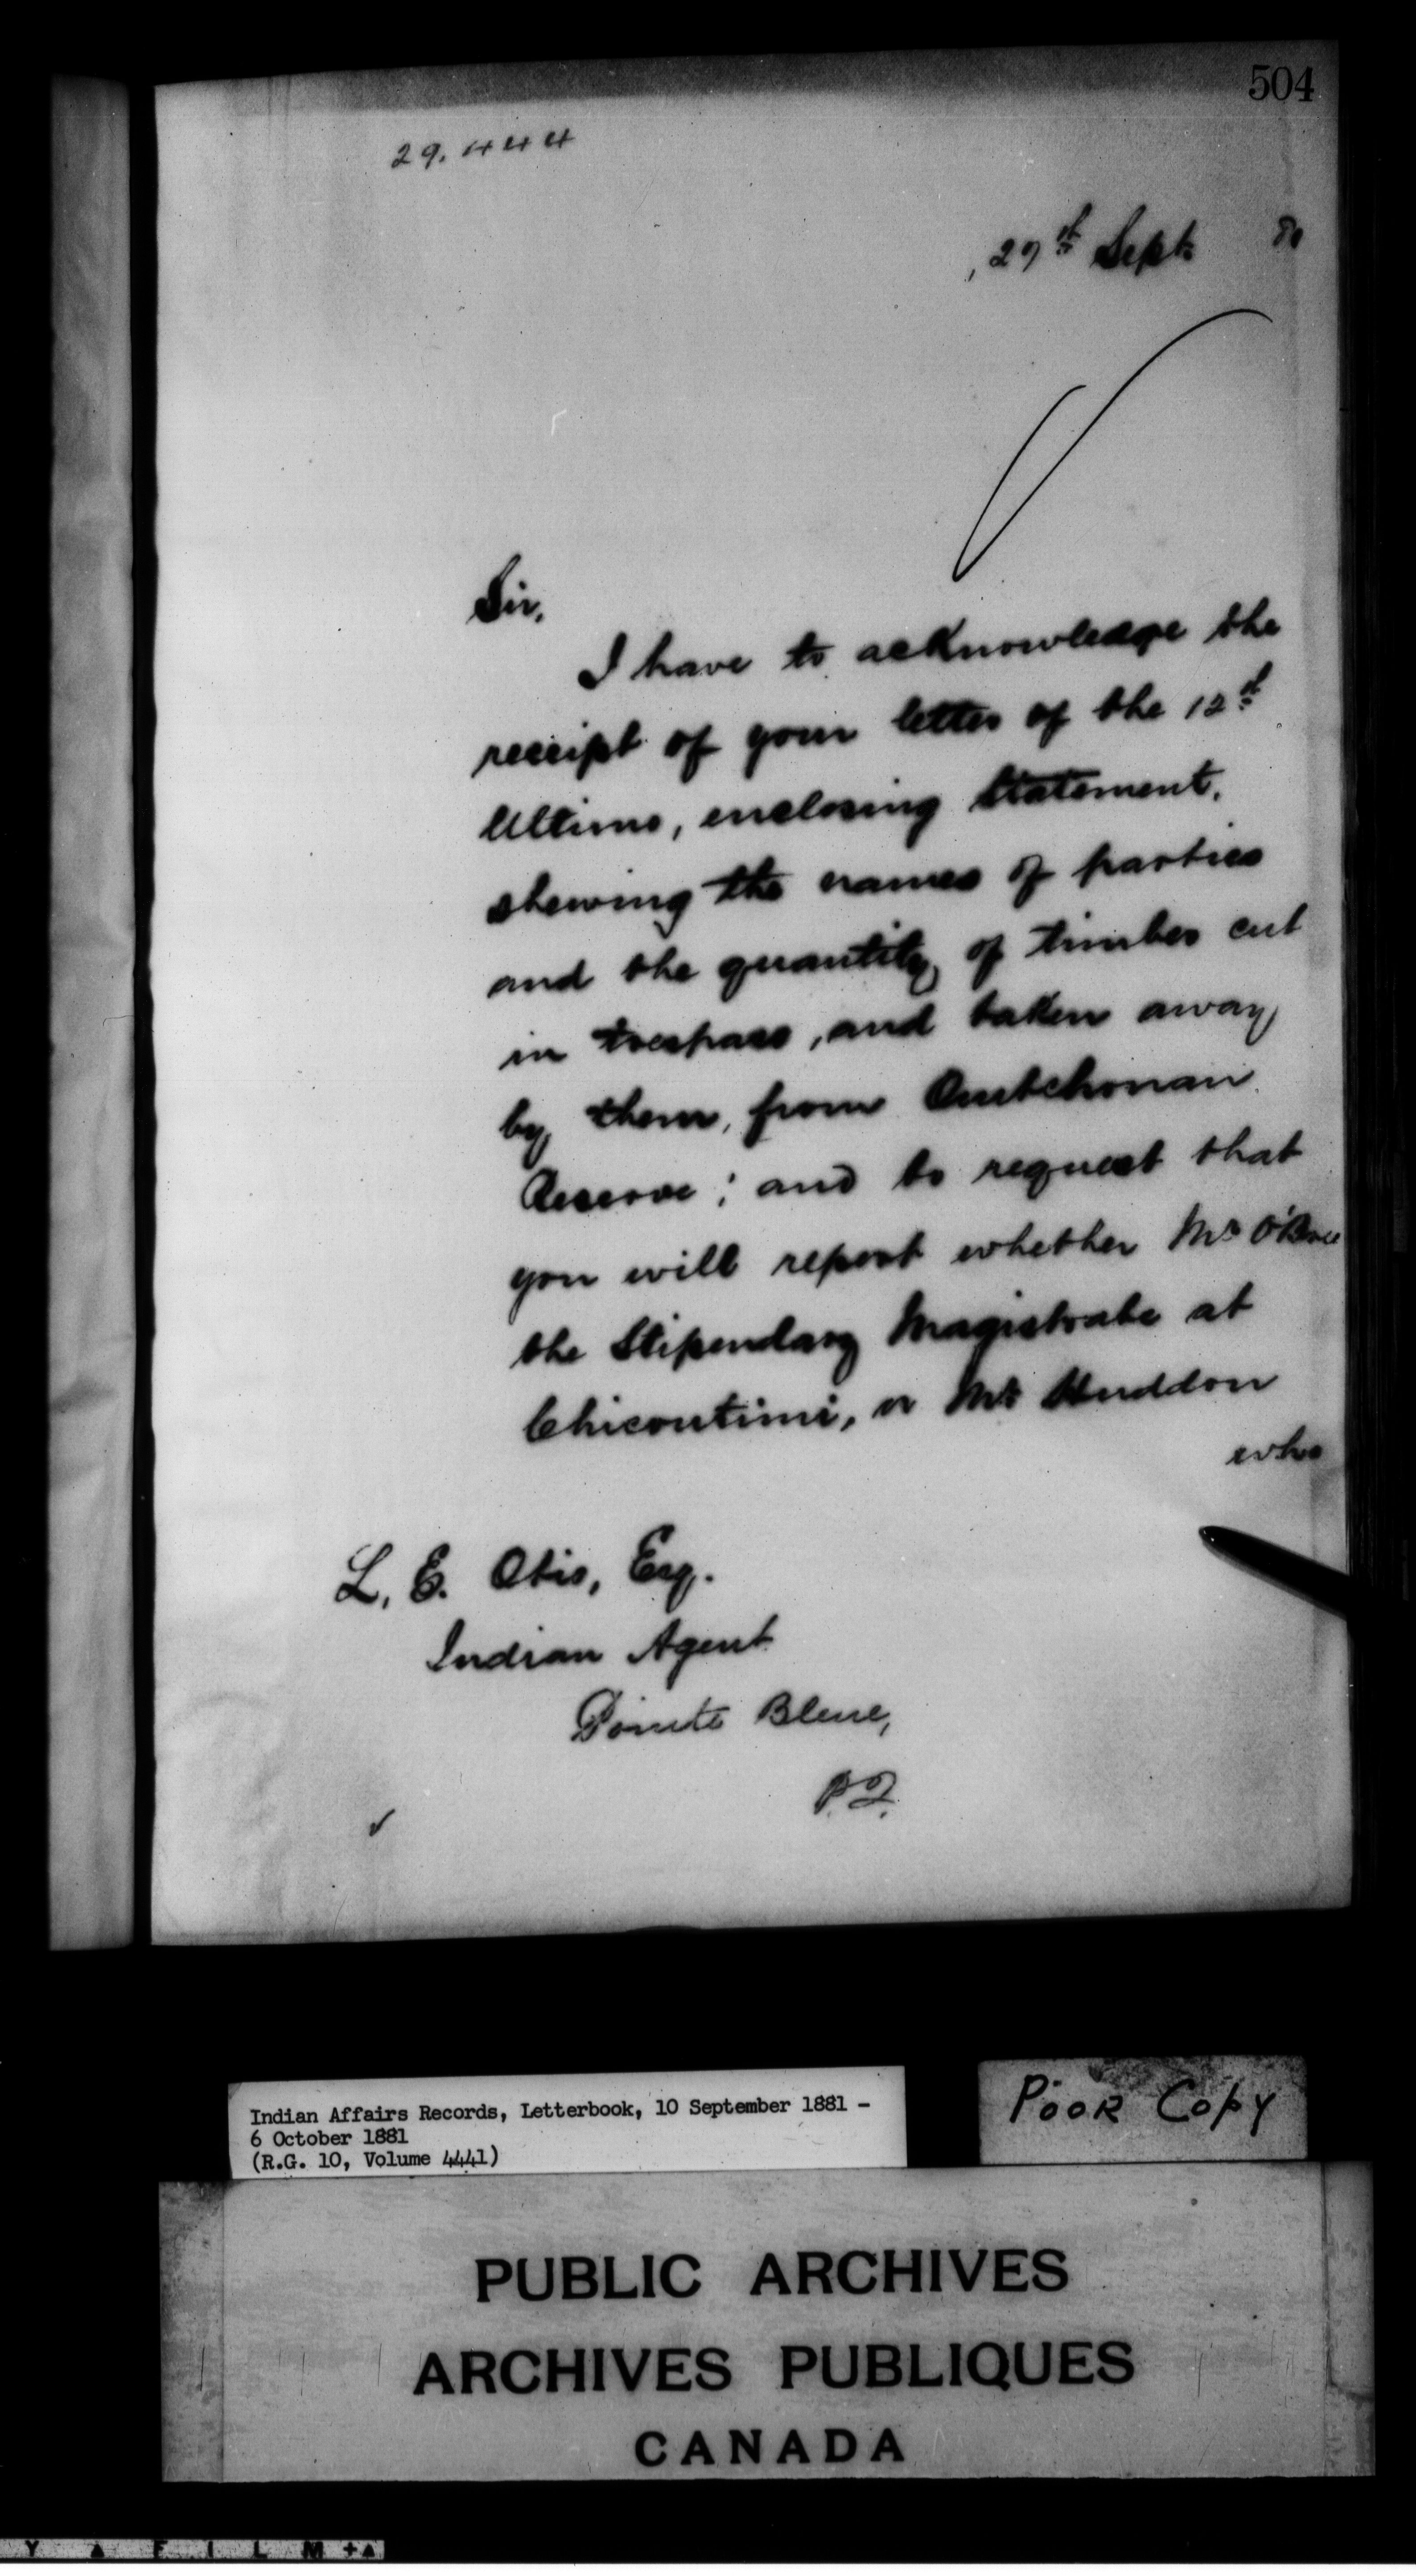 504
29.444
27th Sept. 81
Sir,
I have to acknowledge the
receipt of your letter of the 12th
Ultimo, enclosing Statement,
shewing the names of parties
and the quantity of timber cut
in trespass, and taken away
by them, from Ouitchonan
Reserve; and to request that
you will report whether Mr
the Stipendary Magistrate at
Chicoutimi, or Mr Huddon
who
L. E. Otis, Esq.
Indian Agent
Pointe Bleue,
P.Q.
Indian Affairs Records, Letterbook, 10 September 1881 -
6 October 1881
(R.G. 10, Volume 4441)
Poor Copy
PUBLIC ARCHIVES
ARCHIVES PUBLIQUES
CANADA
Y A F I L M